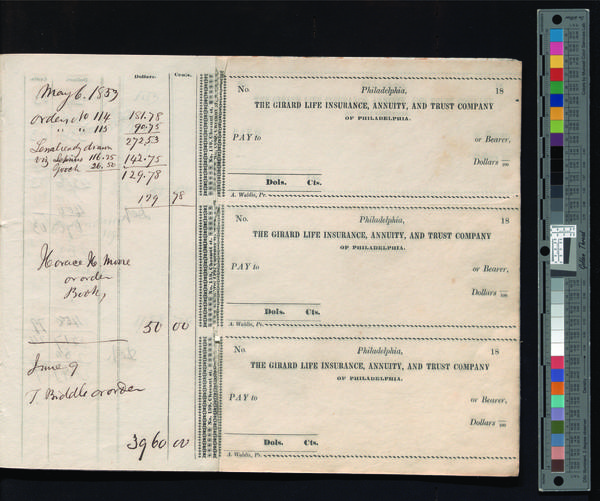 Dollars. Cents.
May 6. 1853
orders No 114 181.78
" " 115 90.75
272,53
Less already drawn
viz Lepines 116.25 142.75
Gooch 26.50
129.78
129 78
Horace H. Moore
or order
Book,
50 00
June 9
T. Biddle or order
3960 00
No. Philadelphia, 18
THE GIRARD LIFE INSURANCE, ANNUITY, AND TRUST COMPANY
OF PHILADELPHIA.
PAY to or Bearer,
Dollars 100
Dols. Cts.
A. Waldie, Pr.
No. Philadelphia, 18
THE GIRARD LIFE INSURANCE, ANNUITY, AND TRUST COMPANY
OF PHILADELPHIA.
PAY to or Bearer,
Dollars 100
Dols. Cts.
A. Waldie, Pr.
No. Philadelphia, 18
THE GIRARD LIFE INSURANCE, ANNUITY, AND TRUST COMPANY
OF PHILADELPHIA.
PAY to or Bearer,
Dollars 100
Dols. Cts.
A. Waldie, Pr.